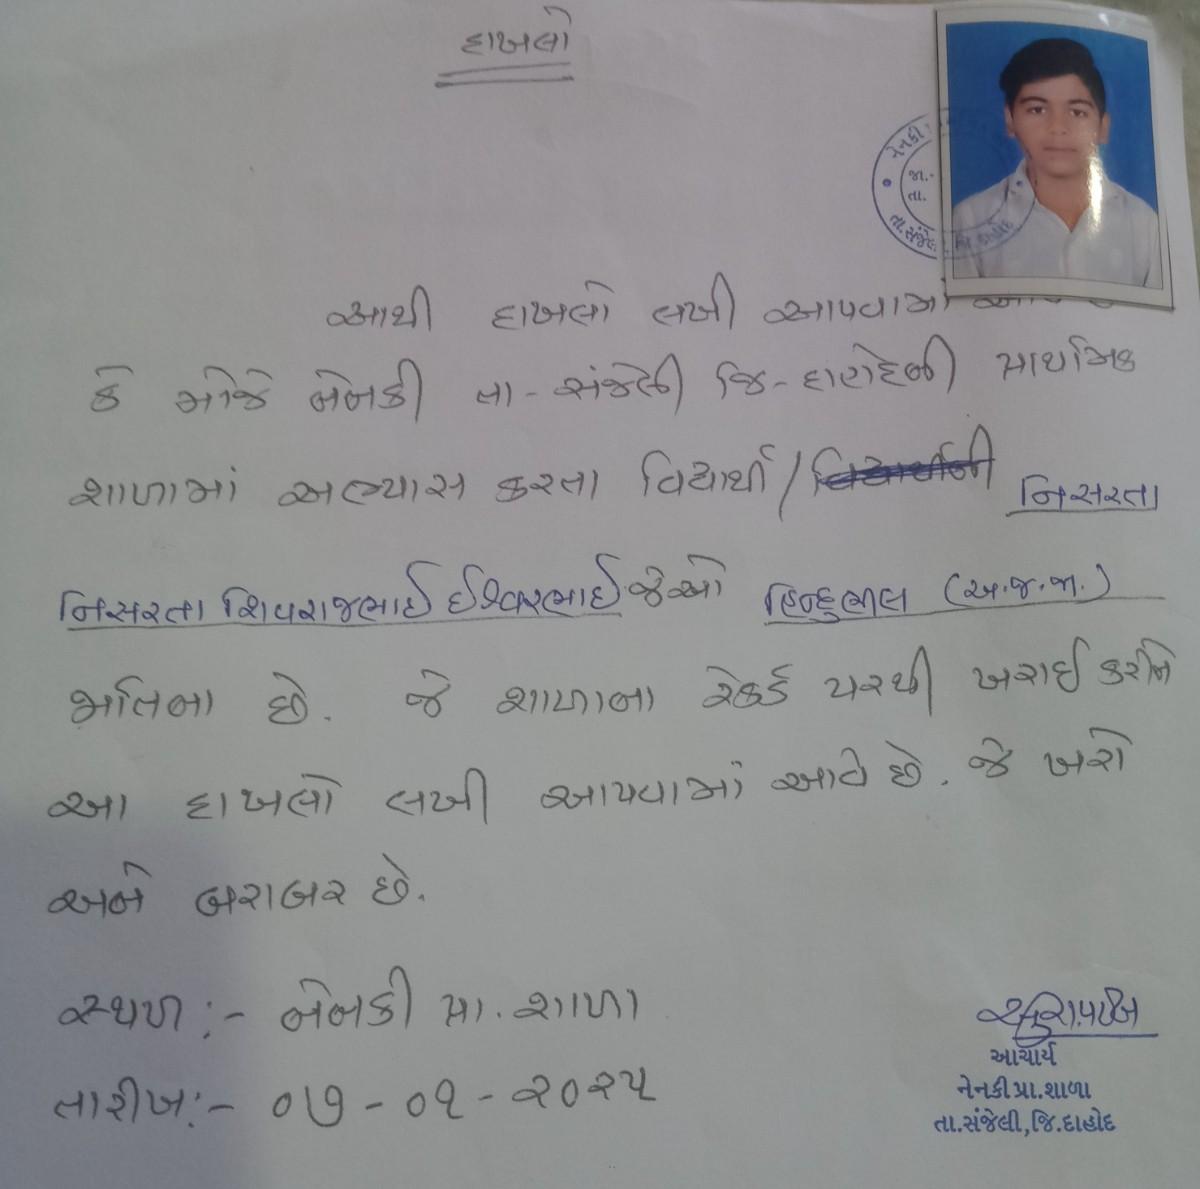 દાખલો
નેનકી
જા.-
તા.
તા.સંજેલી જિ.દાહોદ
આથી દાખલો લખી આપવામાં
કે મોજે નેનકી તા-સંજેલી જિ-દાહોદની પ્રાથમિક
શાળામાં અભ્યાસ કરતા વિદ્યાર્થી/ નિસરતા
નિસરતા શિવરાજભાઈ ઈશ્વરભાઈ જેઓ હિન્દુભીલ (અ.જ.જા.)
જાતિના છે. જે શાળાના રેકર્ડ પરથી ખરાઈ કરીને
આ દાખલો લખી આપવામાં આવે છે. જે ખરો
અને બરાબર છે.
સ્થળ :- નેનકી પ્રા. શાળા
તારીખ:- ૦૭-૦૧-૨૦૨૫
આચાર્ય
નેનકી પ્રા.શાળા
તા.સંજેલી,જિ.દાહોદ